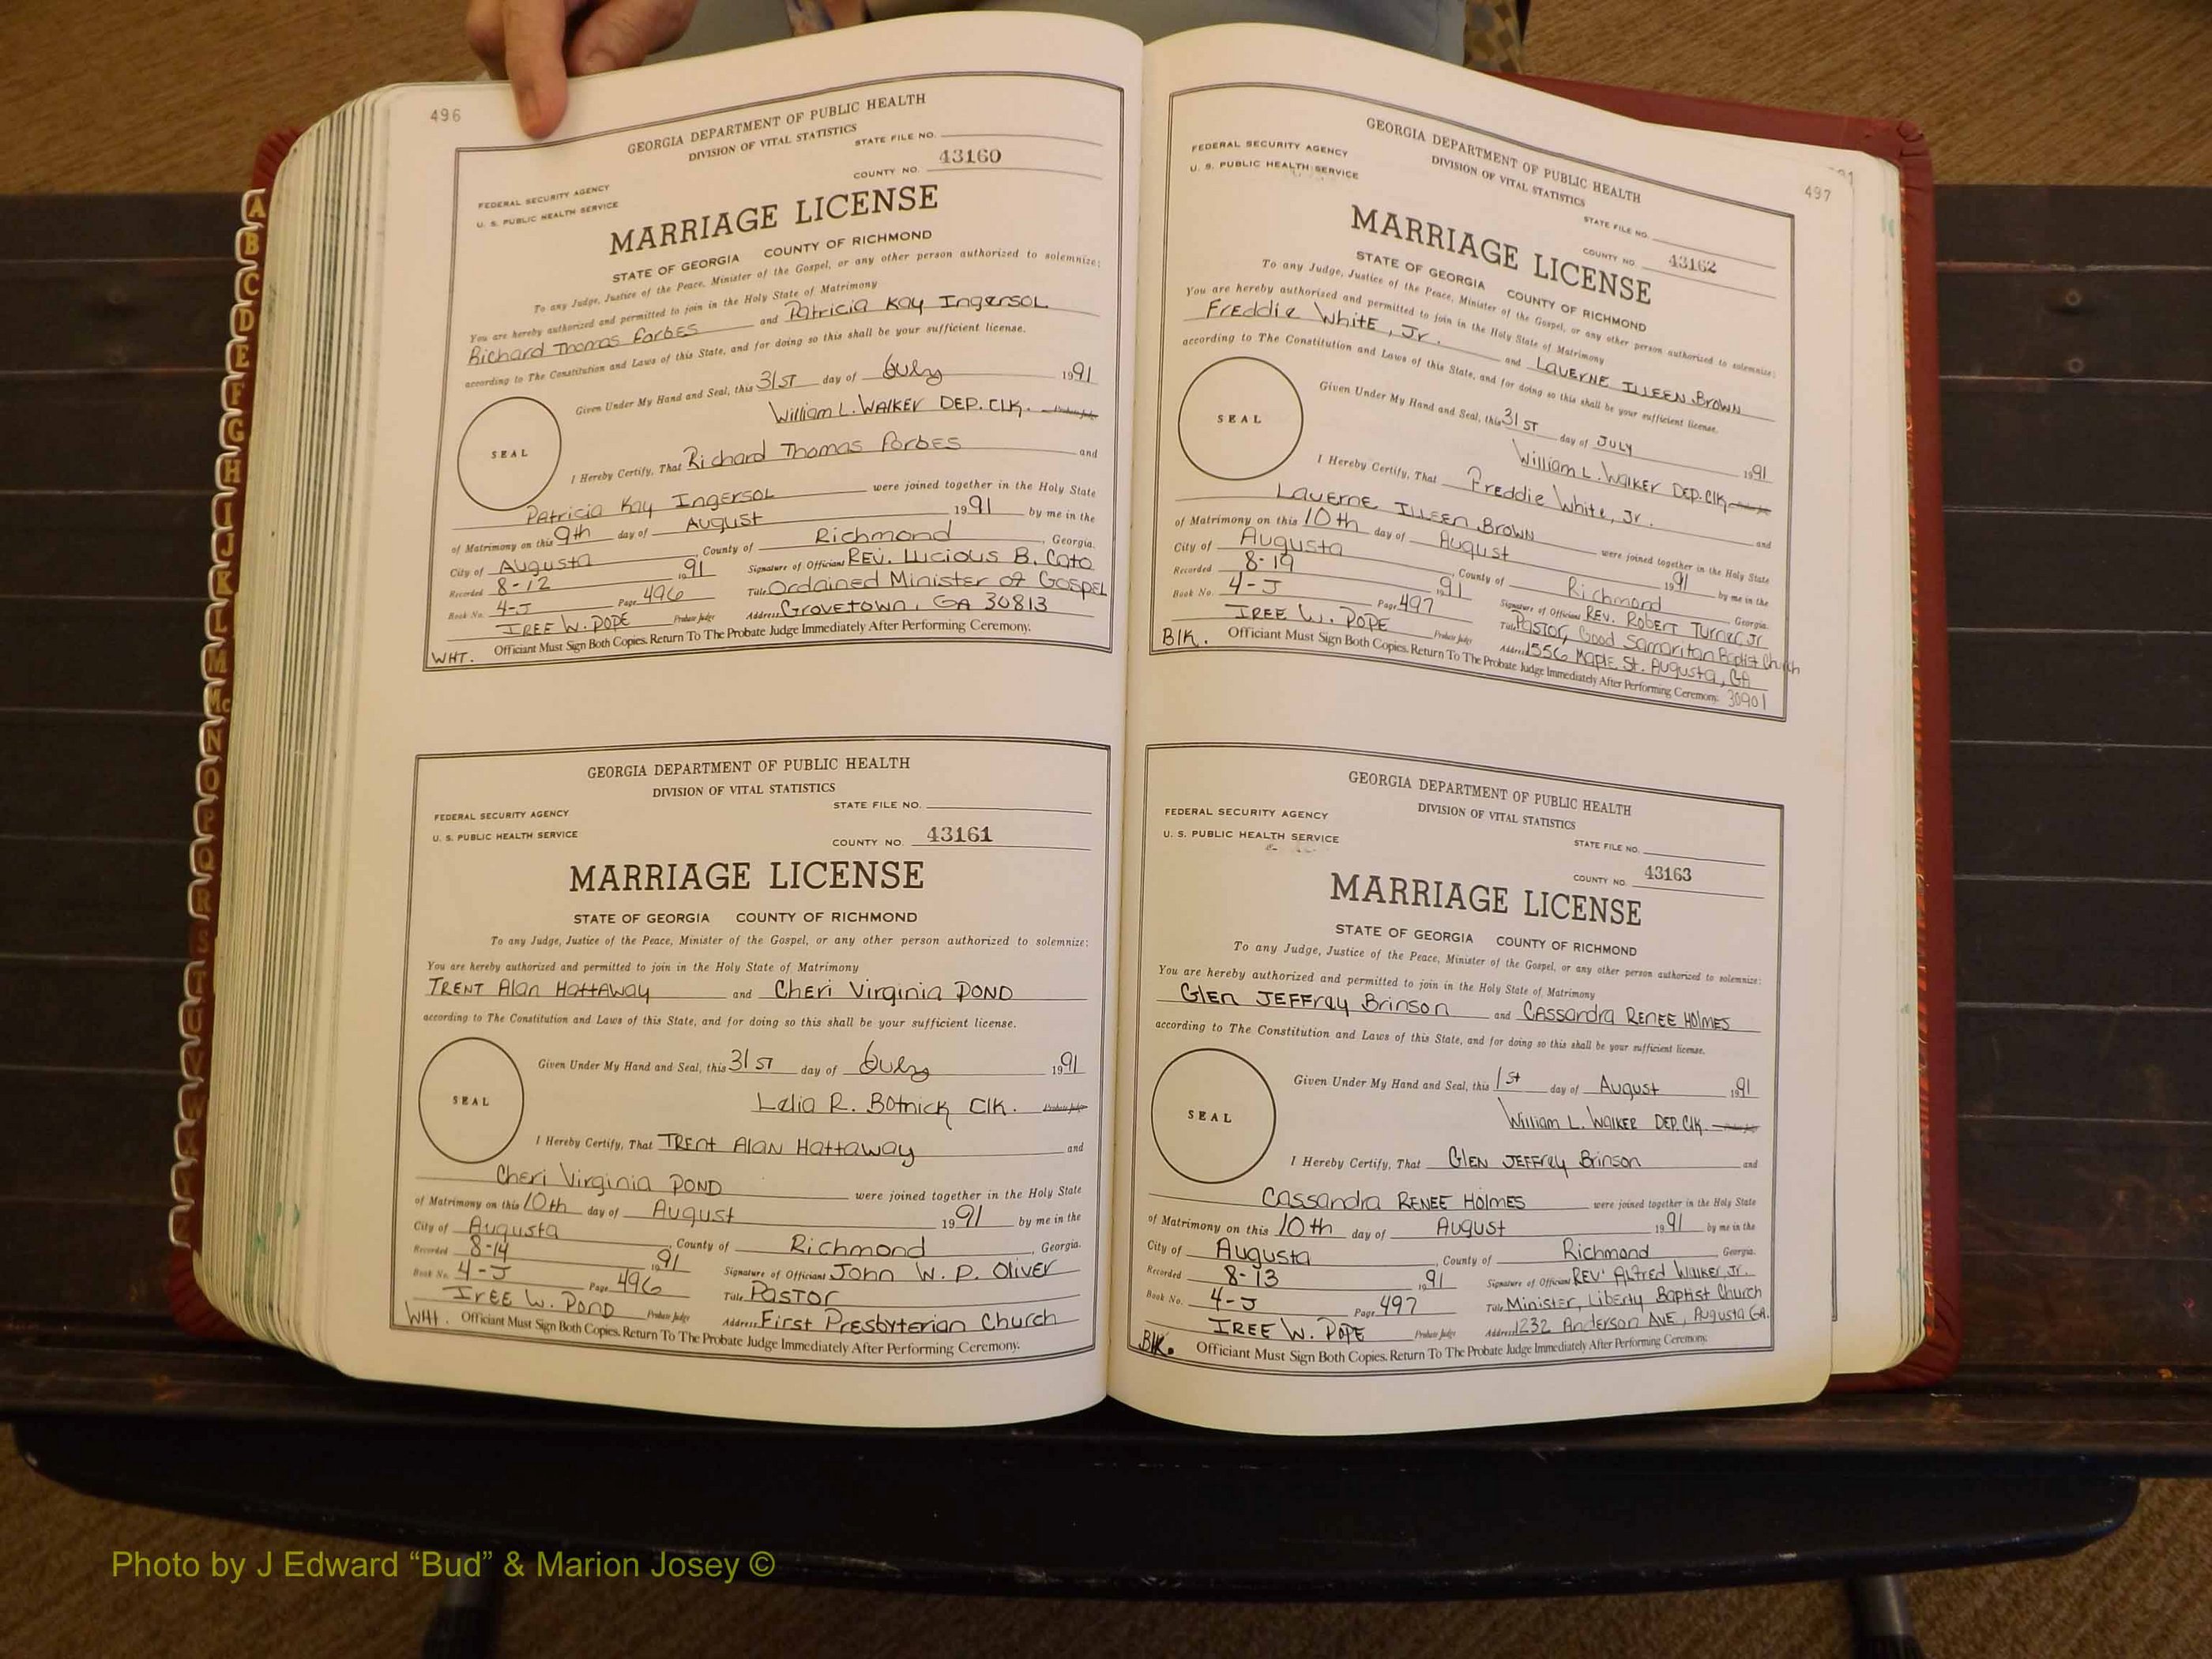 496
GEORGIA DEPARTMENT OF PUBLIC HEALTH
DIVISION OF VITAL STATISTICS
STATE FILE NO.
FEDERAL SECURITY AGENCY
U. S. PUBLIC HEALTH SERVICE
COUNTY NO. 43160
MARRIAGE LICENSE
STATE OF GEORGIA COUNTY OF RICHMOND
To any Judge, Justice of the Peace, Minister of the Gospel, or any other person authorized to solemnize:
You are hereby authorized and permitted to join in the Holy State of Matrimony
Richard Thomas Forbes and Patricia Kay Ingersol
according to The Constitution and Laws of this State, and for doing so this shall be your sufficient license.
Given Under My Hand and Seal, this 31ST day of July 1991
William L. WALKER DEP. CLK. Probate Judge
SEAL
I Hereby Certify, That Richard Thomas Forbes and
Patricia Kay Ingersol were joined together in the Holy State
of Matrimony on this 9th day of August 1991 by me in the
City of Augusta, County of Richmond, Georgia.
Recorded 8-12 1991 Signature of Officiant REV. Lucious B. Cato
Book No. 4-J Page 496 Title Ordained Minister of Gospel
IREE W. POPE Probate Judge Address Grovetown, GA 30813
WHT. Officiant Must Sign Both Copies. Return To The Probate Judge Immediately After Performing Ceremony.
GEORGIA DEPARTMENT OF PUBLIC HEALTH
DIVISION OF VITAL STATISTICS
STATE FILE NO.
FEDERAL SECURITY AGENCY
U. S. PUBLIC HEALTH SERVICE
COUNTY NO. 43161
MARRIAGE LICENSE
STATE OF GEORGIA COUNTY OF RICHMOND
To any Judge, Justice of the Peace, Minister of the Gospel, or any other person authorized to solemnize:
You are hereby authorized and permitted to join in the Holy State of Matrimony
TRENT Alan HattAway and Cheri Virginia POND
according to The Constitution and Laws of this State, and for doing so this shall be your sufficient license.
Given Under My Hand and Seal, this 31ST day of July 1991
Lelia R. Botnick Clk. Probate Judge
SEAL
I Hereby Certify, That TRENT Alan Hattaway and
Cheri Virginia POND were joined together in the Holy State
of Matrimony on this 10th day of August 1991 by me in the
City of Augusta, County of Richmond, Georgia.
Recorded 8-14 1991 Signature of Officiant John W. P. Oliver
Book No. 4-J Page 496 Title Pastor
IREE W. POND Probate Judge Address First Presbyterian Church
WHT. Officiant Must Sign Both Copies. Return To The Probate Judge Immediately After Performing Ceremony.
497
GEORGIA DEPARTMENT OF PUBLIC HEALTH
DIVISION OF VITAL STATISTICS
FEDERAL SECURITY AGENCY
U. S. PUBLIC HEALTH SERVICE
STATE FILE NO.
COUNTY NO. 43162
MARRIAGE LICENSE
STATE OF GEORGIA COUNTY OF RICHMOND
To any Judge, Justice of the Peace, Minister of the Gospel, or any other person authorized to solemnize:
You are hereby authorized and permitted to join in the Holy State of Matrimony
Freddie White, Jr. and LAVERNE ILLEEN Brown
according to The Constitution and Laws of this State, and for doing so this shall be your sufficient license.
Given Under My Hand and Seal, this 31ST day of JULY 1991
William L. WALKER DEP. Clk. Probate Judge
SEAL
I Hereby Certify, That Freddie White, Jr. and
Laverne Illeen Brown were joined together in the Holy State
of Matrimony on this 10th day of August 1991 by me in the
City of Augusta, County of Richmond, Georgia.
Recorded 8-19 1991 Signature of Officiant REV. Robert Turner, Jr
Book No. 4-J Page 497 Title Pastor, Good Samaritan Baptist Church
IREE W. POPE Probate Judge Address 1556 Maple St. Augusta, GA
30901
Blk. Officiant Must Sign Both Copies. Return To The Probate Judge Immediately After Performing Ceremony.
GEORGIA DEPARTMENT OF PUBLIC HEALTH
DIVISION OF VITAL STATISTICS
FEDERAL SECURITY AGENCY
U. S. PUBLIC HEALTH SERVICE
STATE FILE NO.
COUNTY NO. 43163
MARRIAGE LICENSE
STATE OF GEORGIA COUNTY OF RICHMOND
To any Judge, Justice of the Peace, Minister of the Gospel, or any other person authorized to solemnize:
You are hereby authorized and permitted to join in the Holy State of Matrimony
Glen JEFFray Brinson and CAssandra RENEE HOlMES
according to The Constitution and Laws of this State, and for doing so this shall be your sufficient license.
Given Under My Hand and Seal, this 1st day of August 1991
William L. WALKER DEP. Clk. Probate Judge
SEAL
I Hereby Certify, That Glen JEFFrey Brinson and
Cassandra RENEE HOlMES were joined together in the Holy State
of Matrimony on this 10th day of August 1991 by me in the
City of Augusta, County of Richmond, Georgia.
Recorded 8-13 1991 Signature of Officiant REV' Alfred Walker, Jr.
Book No. 4-J Page 497 Title Minister, Liberty Baptist Church
IREE W. POPE Probate Judge Address 1232 Anderson AVE, Augusta GA.
Blk. Officiant Must Sign Both Copies. Return To The Probate Judge Immediately After Performing Ceremony.
A
B
C
D
E
F
G
H
I
J
K
L
M
Mc
N
O
P
Q
R
S
T
Photo by J Edward “Bud” & Marion Josey ©